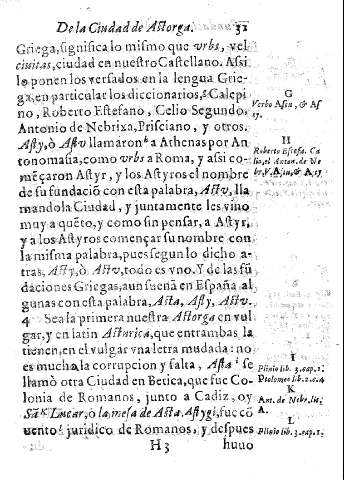 De la Ciudad de Astorga. 31
Griega, significa lo mismo que vrbs, vel
ciuitas, ciudad en nuestro Castellano. Assi
lo ponen los versados en la lengua Grie-
ga, en particular los diccionarios, Calepi
no, Roberto Estefano, Celio Segundo,
Antonio de Nebrixa, Prisciano, y otros.
Asty, ò Astu llamaron h a Athenas por An
tonomasia, como vrbs a Roma, y asi co-
mẽçaron Astyr, y los Astyros el nombre
de su fundaciõ con esta palabra, Astu, lla
mandola Ciudad, y juntamente les vino
muy a quẽto, y como sin pensar, a Astyr,
y a los Astyros començar su nombre con
la misma palabra, pues segun lo dicho a-
tras, Asty, ò Astu, todo es vno. Y de las fũ
daciones Griegas, aun suenã en España al
gunas con esta palabra, Asta, Asty, Astu.
4 Sea la primera nuestra Astorga en vul
gar, y en latin Asturica, que entrambas la
tienen, en el vulgar vna letra mudada: no
es mucha la corrupcion y falta, Asta i se
llamò otra Ciudad en Betica, que fue Co
lonia de Romanos, junto a Cadiz, oy
Sã k Lucar, ò la mesa de Asta. Astygi, fue cõ
uento l juridico de Romanos, y despues
H 3 huuo
G
Verbo Asiu, & As
17.
H
Roberto Estefa. Ca
lio, el Anton. de Ne
br. V. Asiu, & A. 17
I
Plinio lib. 3. cap. 1.
Ptolomeo lib. 2. c. 4
K
Ant. de Nebr. lit.
A.
L
Plinio lib. 3. cap. 1.